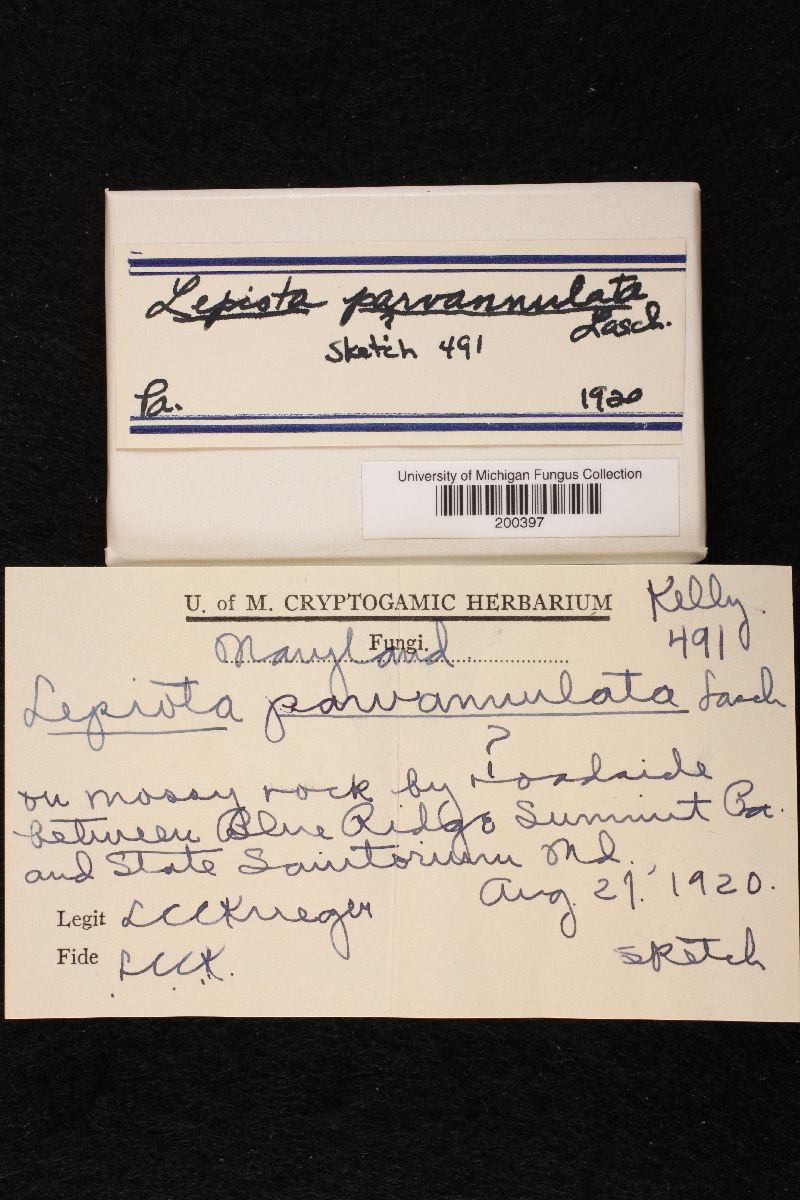 Lepiota parvannulata
Lasch.
?
Sketch 491
Pa.
1920
University of Michigan Fungus Collection
200397
U. of M. CRYPTOGAMIC HERBARIUM
Kelly
491
Fungi.
Maryland
Lepiota parvannulata Lasch
?
on mossy rock by roadside
between Blue Ridge Summit Pa.
and State Sanitorium Md.
Aug. 27. 1920.
Legit LCCKrieger
Fide LCCK.
sketch